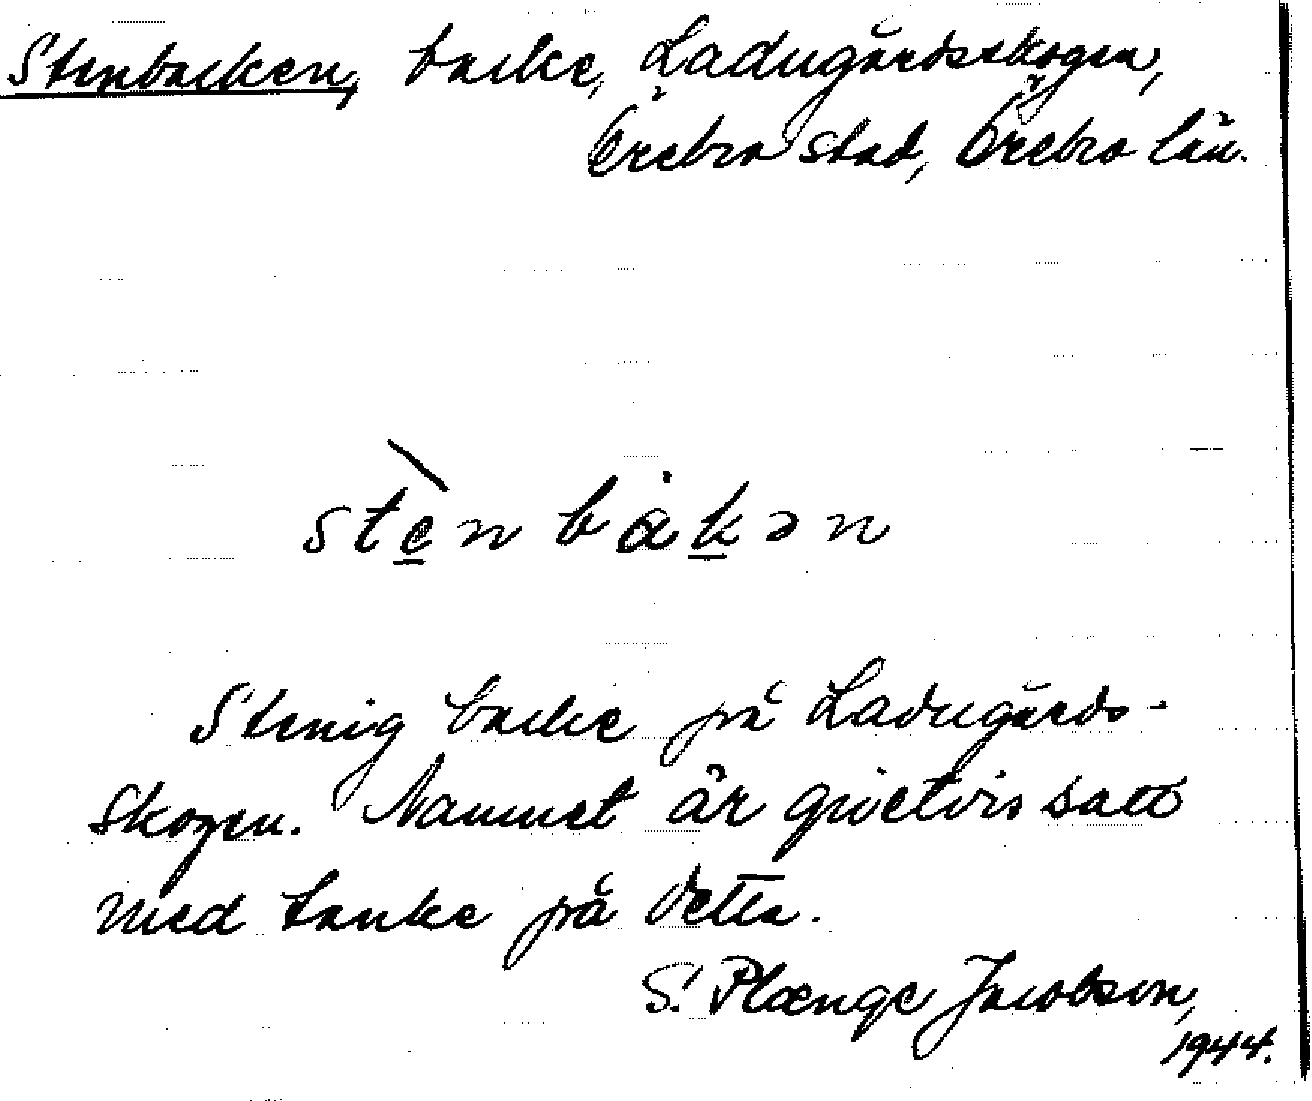 Stenbacken, backe, Ladugårdsskogen,
Örebro stad, Örebro län.
stèn båkən
Stenig backe på Ladugårds-
skogen. Namnet är givetvis satt
med tanke på detta.
S. Plænge Jacobson,
1944.